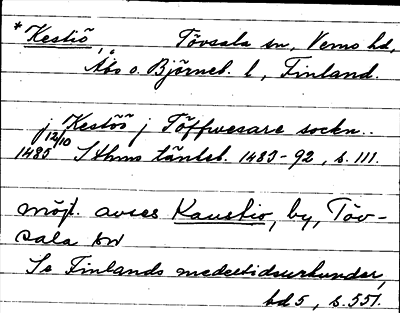 *Kestiö, Tövsala sn, Vemo hd,
Åbo o. Björneb. l, Finland.
j Kestöö j Töffwesare sockn..
1485 12/10 Sthms tänkeb. 1483-92, s. 111.
möjl. avses Kaustio, by, Töv-
sala sn
Se Finlands medeltidsurkunder,
bd 5, s. 551.